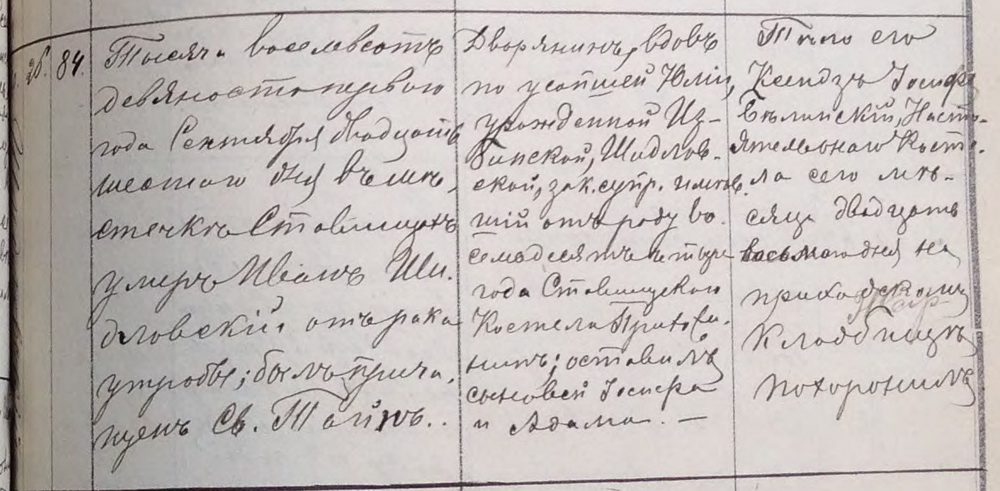 28. 84.
Тысяча восемьсотъ
девяносто перваго
года Сентября двадцать
шестого дня въ мѣ-
стечкѣ Ставищахъ
умеръ Иванъ Ши-
дловскій, отъ рака
утробы; былъ прича-
щенъ Св. Тайнъ.
Дворянинъ, вдовъ
по усопшей Юліи,
урожденной Из-
бинской, Шидлов-
ской, зак. супр. имѣв-
шій отъ роду во-
семьдесятъ четыре
года Ставищскаго
Костела Прихожа-
нинъ; оставилъ
сыновей Іосифа
и Адама. —
Тѣло его
Ксендзъ Іосифъ
Бѣлинскій, Насто-
ятель онаго Косте-
ла сего мѣ-
сяца двадцать
восьмого дня на
приходскомъ
Кладбищѣ
похоронилъ